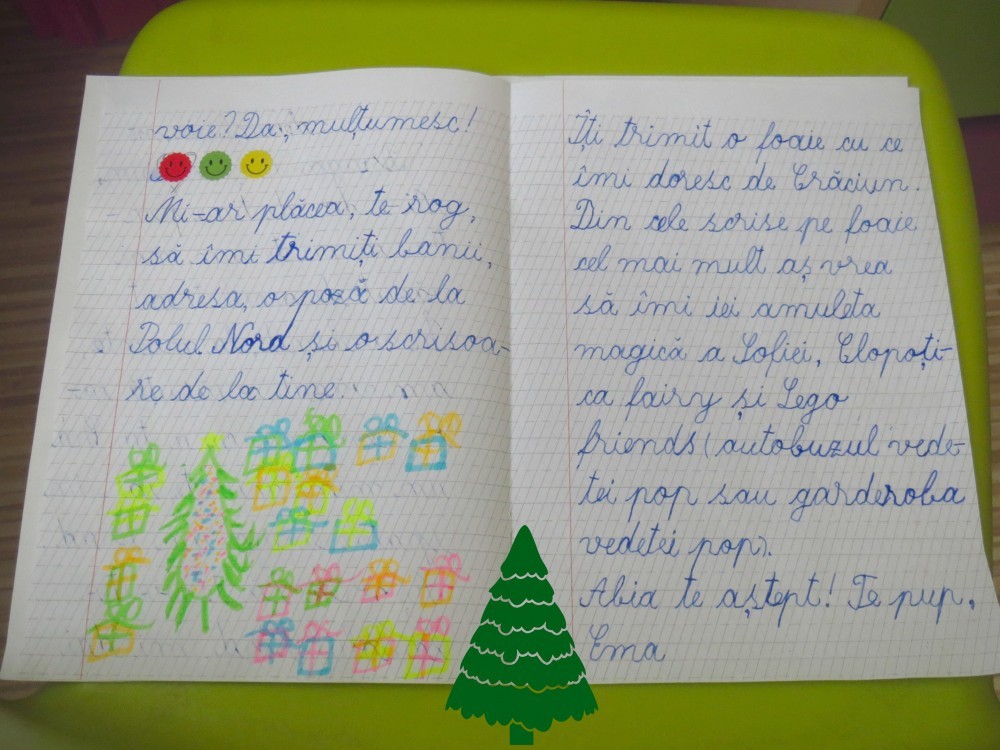 voie? Da, mulțumesc!
Mi-ar plăcea, te rog,
să îmi trimiți banii,
adresa, o poză de la
Polul Nord și o scrisoa-
re de la tine.
Îți trimit o foaie cu ce
îmi doresc de Crăciun.
Din cele scrise pe foaie
cel mai mult aș vrea
să îmi iei amuleta
magică a Sofiei, Clopoți-
ca fairy și Lego
friends (autobuzul vede-
tei pop sau garderoba
vedetei pop).
Abia te aștept! Te pup,
Ema